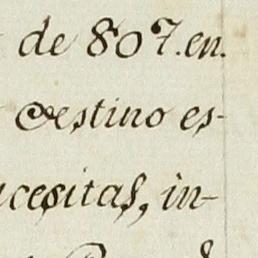 de 807. en.
destino es-
cesitas, in-